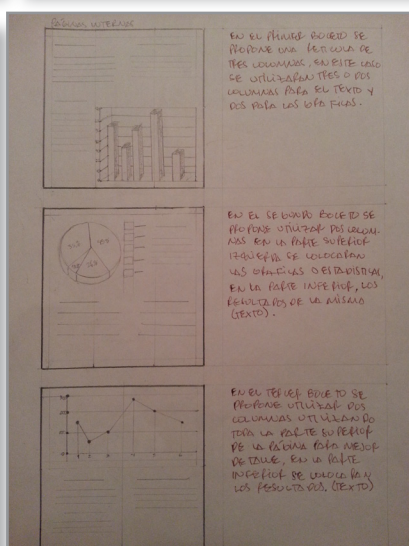 PÁGINAS INTERNAS
EN EL PRIMER BOCETO SE
PROPONE UNA RETICULA DE
TRES COLUMNAS, EN ESTE CASO
SE UTILIZARAN TRES O DOS
COLUMNAS PARA EL TEXTO Y
DOS PARA LAS GRAFICAS.
EN EL SEGUNDO BOCETO SE
PROPONE UTILIZAR DOS COLUM-
NAS EN LA PARTE SUPERIOR
IZQUIERDA SE COLOCARAN
LAS GRAFICAS O ESTADISTICAS,
EN LA PARTE INFERIOR, LOS
RESULTADOS DE LA MISMO
(TEXTO).
EN EL TERCER BOCETO SE
PROPONE UTILIZAR DOS
COLUMNAS UTILIZANDO
TODA LA PARTE SUPERIOR
DE LA PÁGINA PARA MEJOR
DETALLE, EN LA PARTE
INFERIOR SE COLOCARAN
LOS RESULTADOS. (TEXTO)